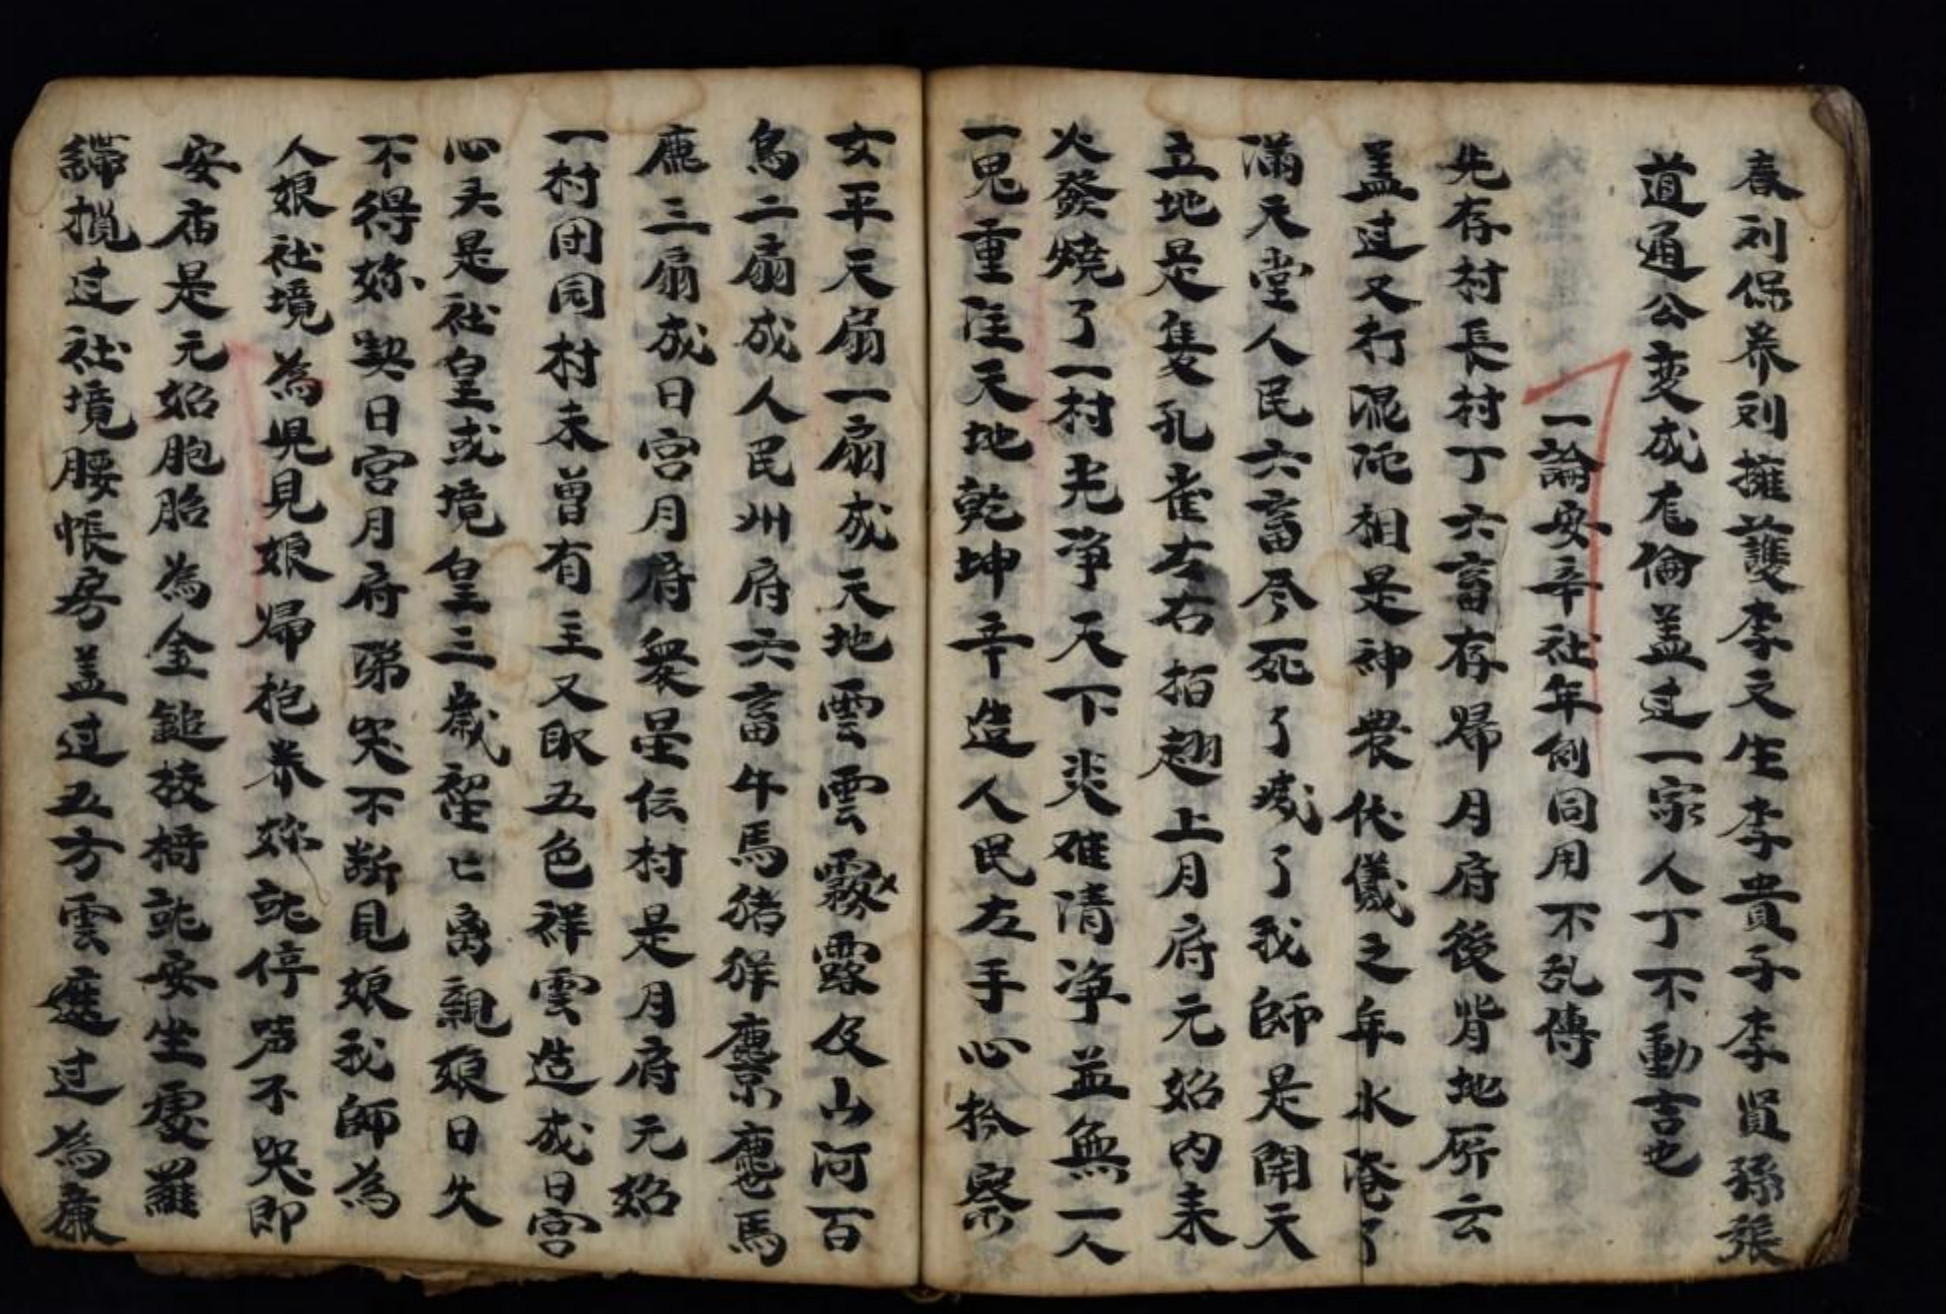 春刘保养刘擁護李文生李貴子李買孫張
道通公变成尨倫盖过一家人丁不動言也
一論安辛社年例同用不乱傳
先存村長村丁六畜存歸月府後背地所云
盖过又打混沌相是神農伏儀之年水淹了
滿天堂人民六畜尽死了滅了我師是開天
立地是隻孔雀左右拍翅上月府元始内来
火發燒了一村光淨天下炎难清淨並無一人
一鬼重注天地乾坤辛造人民左手心拎察
女平天扇一扇成天地雲雲霧露及山河百
鳥二扇成人民州府六畜牛馬猪群麞麖麂馬
鹿三扇成日宮月府衆星伝村是月府元始
一村团园村未曾有主又取五色祥雲造成日宮
心头是社皇或境皇三歲亡离親娘日久
不得妳契日宮月府啼哭不断見娘我師為
人娘社境為児見娘歸抱养妳訛停声不哭即
安庙是元始胞胎為金鎚校椅訛安坐處羅
攬过社境腰帳房盖过五方雲遮过為廉